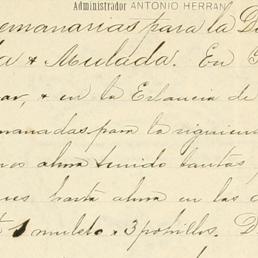 Administrador ANTONIO HERRAN
emanarias para la D
a & Mulada. En
ar, & en la Estancia de
manadas para la siguien
os ahora tenido tantas
ues hasta ahora en las
1 muleto & 3 potrillos. D